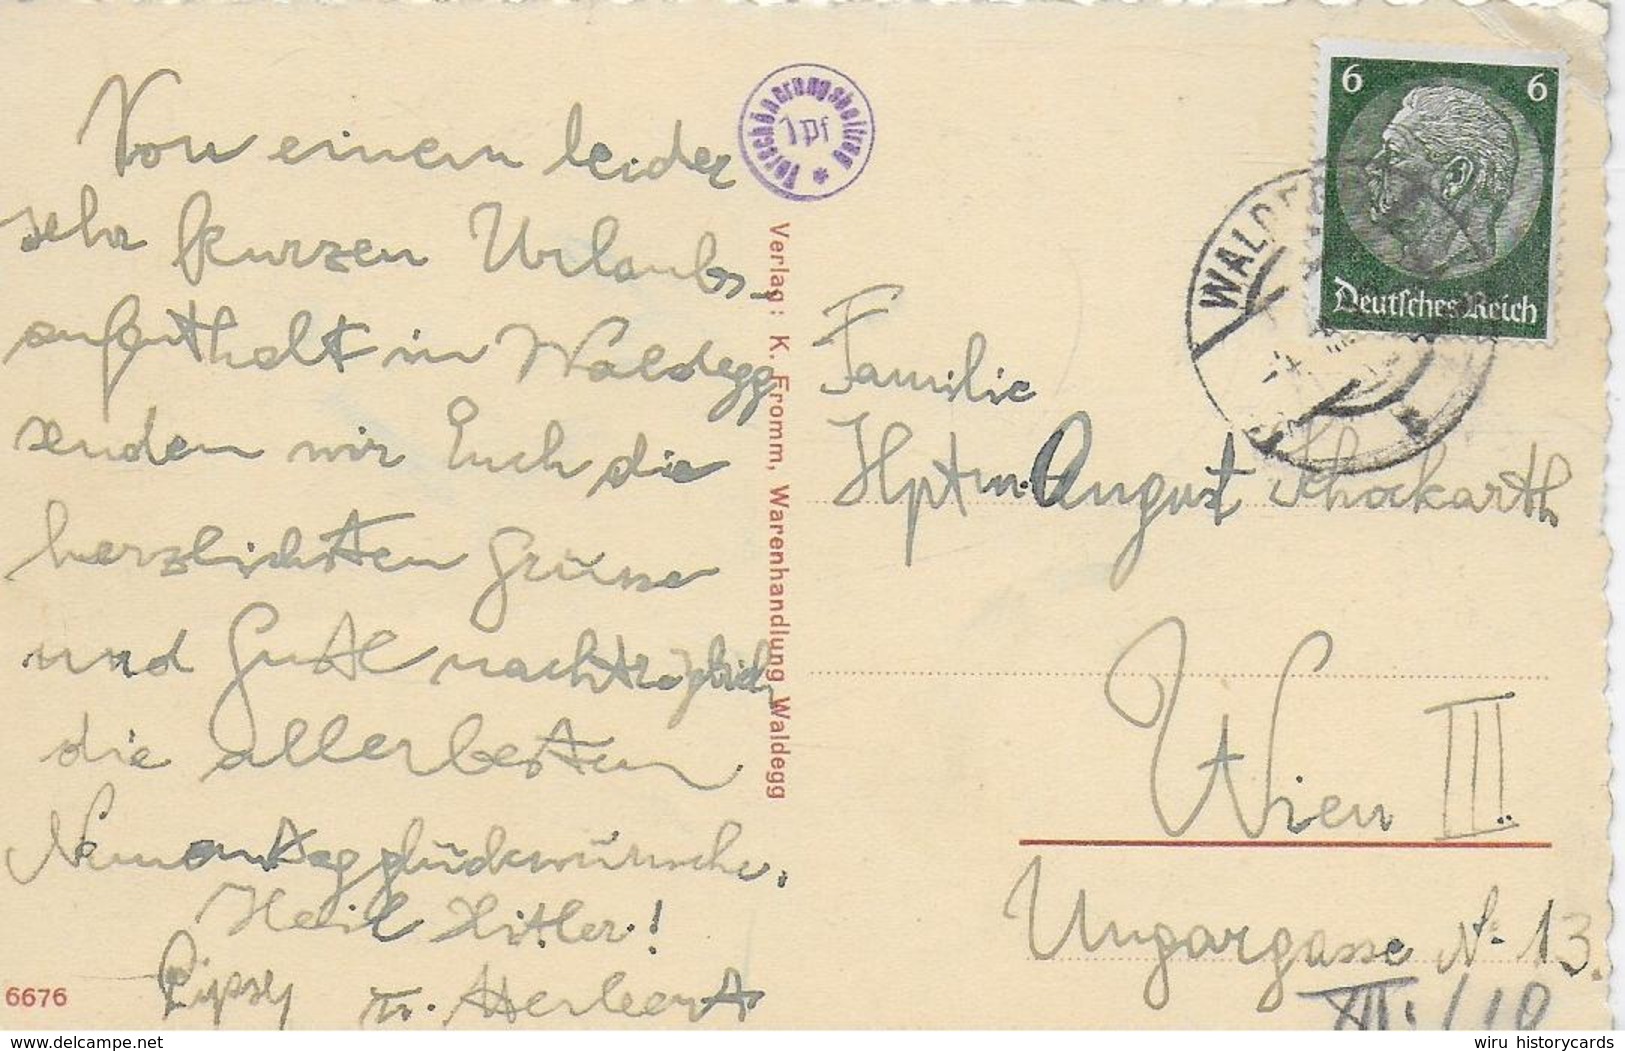 Von einem leider
sehr kurzen Urlaubs-
aufenthalt in Waldegg
senden wir Euch die
herzlichsten Grüsse
und Gute nachträglich
die allerbesten
Namenstagglückwünsche.
Heil Hitler!
u. Herbert
6676
Verschönerungsbeitrag *
1 Pf
Verlag: K. Fromm, Warenhandlung Waldegg
6 6
Deutsches Reich
WALDEGG
Familie
Hptm. August Schockarth
Wien III.
Ungargasse N. 13.
XII./10
delcampe.net
wiru historycards